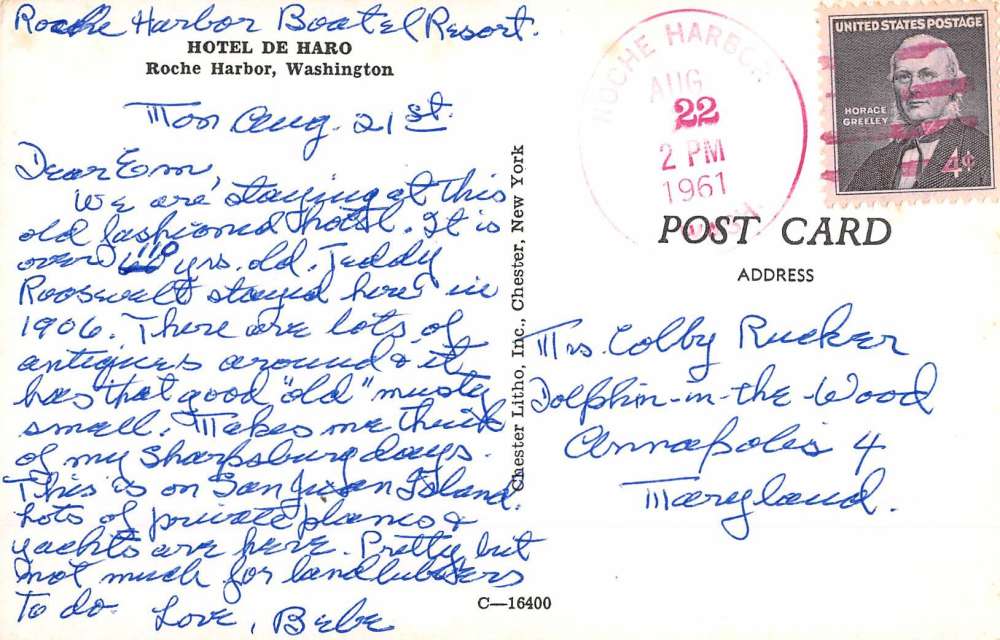 Roche Harbor Boatel Resort.
HOTEL DE HARO
Roche Harbor, Washington
Mon Aug. 21st.
Dear Em,
We are staying at this
old fashioned hotel. It is
over 110 yrs. old. Teddy
Roosevelt stayed here in
1906. There are lots of
antiques around & it
has that good "old" musty
smell. Makes me think
of my Sharpsburg days.
This is on San Juan Island.
Lots of private planes &
yachts are here. Pretty but
not much for landlubbers
to do.
Love, Bebe
Chester Litho, Inc., Chester, New York
C—16400
ROCHE HARBOR
AUG
22
2 PM
1961
WASH.
UNITED STATES POSTAGE
HORACE
GREELEY
4¢
POST CARD
ADDRESS
Mrs. Colby Rucker
Dolphin-in-the-Wood
Annapolis 4
Maryland.